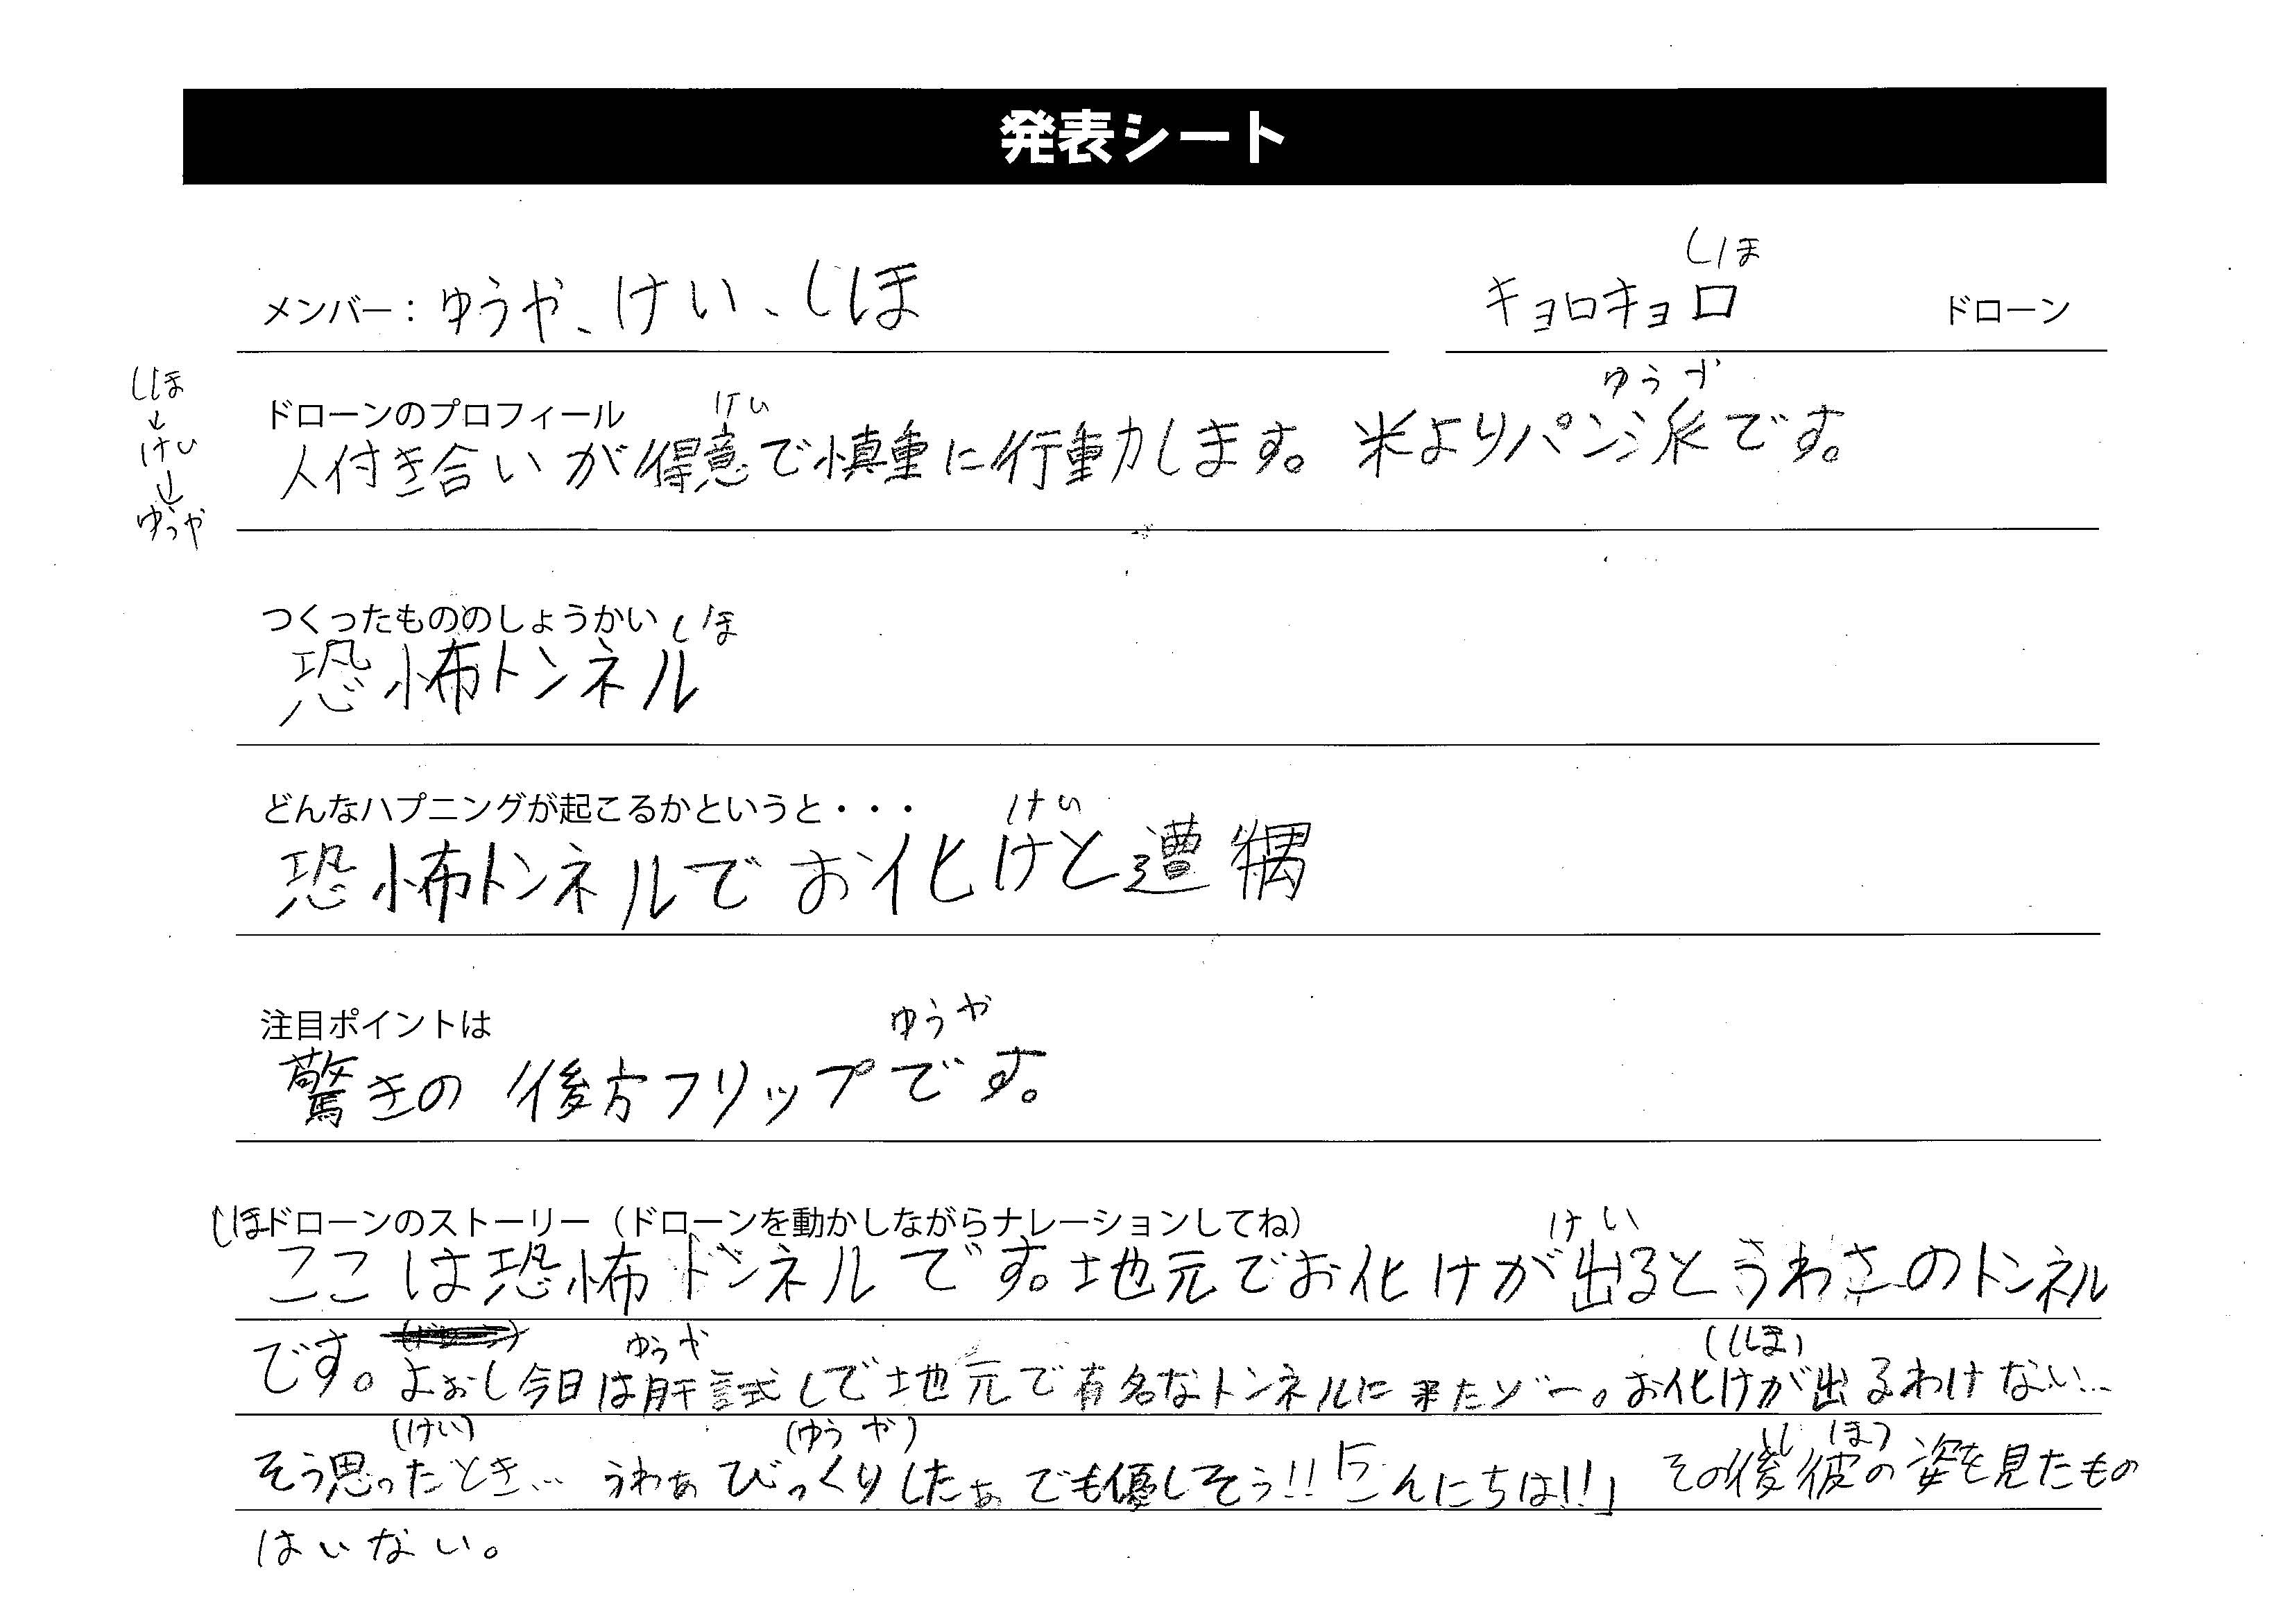 発表シート
しほ
メンバー：ゆうや、けい、しほ キョロキョロ ドローン
しほ
↓
けい
↓
ゆうや
ドローンのプロフィール けい ゆうや
人付き合いが得意で慎重に行動します。米よりパン派です。
つくったもののしょうかい しほ
恐怖トンネル
どんなハプニングが起こるかというと・・・ けい
恐怖トンネルでお化けと遭遇
注目ポイントは ゆうや
驚きの後方フリップです。
しほ ドローンのストーリー（ドローンを動かしながらナレーションしてね） けい
ここは恐怖トンネルです。地元でお化けが出るとうわさのトンネル
ゆうや (しほ)
です。よぉし今日は肝試しで地元で有名なトンネルに来たゾー。お化けが出るわけない…
(けい) (ゆうや) (しほ)
そう思ったとき… うわぁびっくりしたぁでも優しそう!!「こんにちは!!」 その後彼の姿を見たもの
はいない。